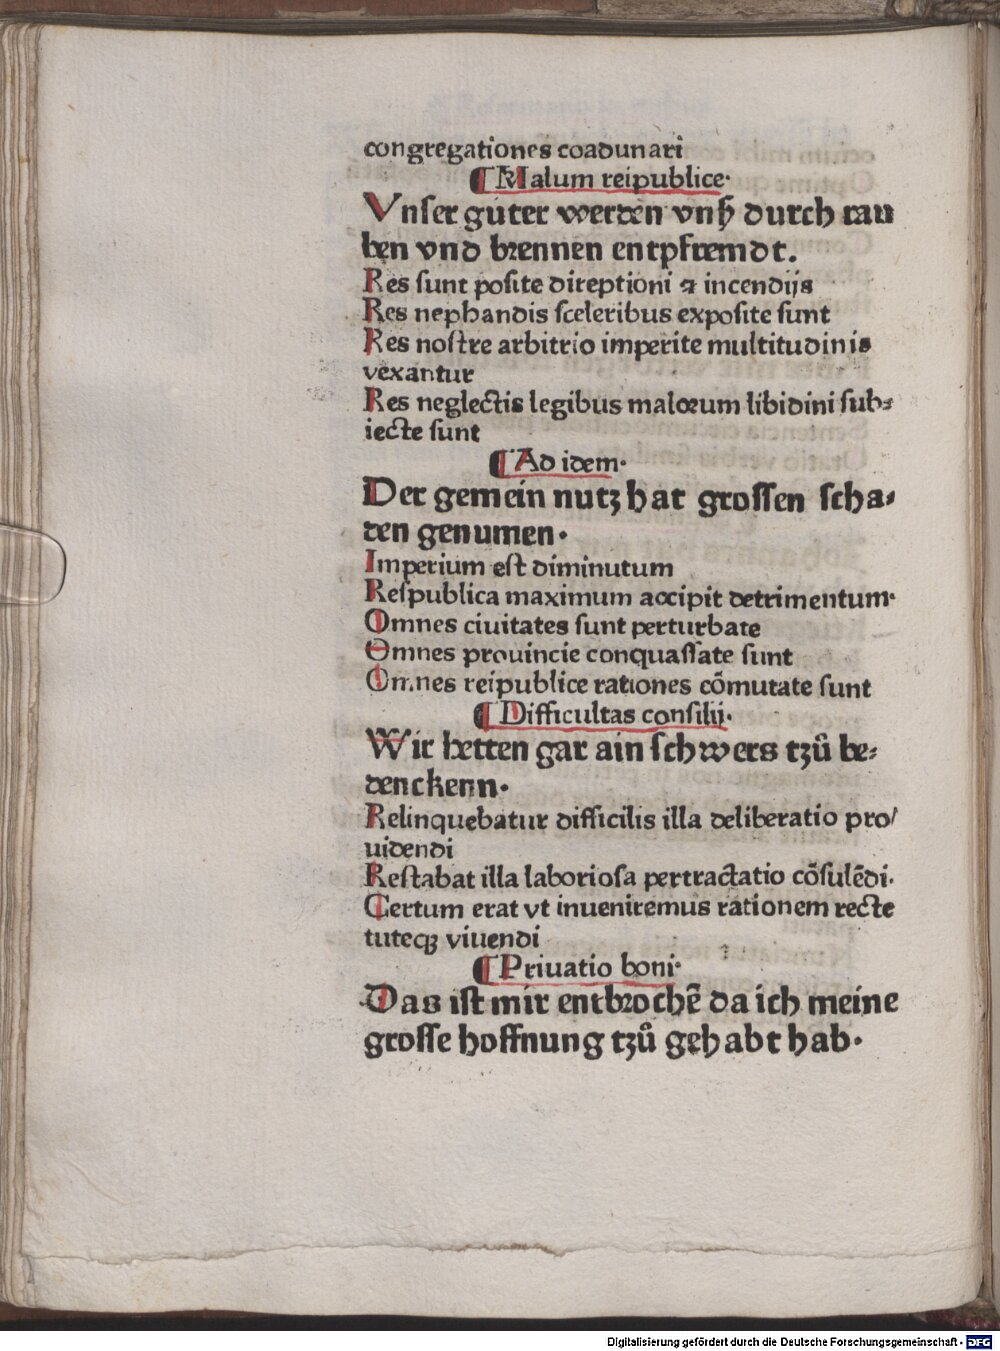 congregationes coadunari
¶ Malum reipublice·
Vnser guter werden vnß durch rau
ben vnd brennen entpfremdt.
Res sunt posite direptioni ⁊ incendijs
Res nephandis sceleribus exposite sunt
Res nostre arbitrio imperite multitudinis
vexantur
Res neglectis legibus malorum libidini sub⸗
iecte sunt
¶ Ad idem·
Der gemein nutz hat grossen scha⸗
den genumen·
Imperium est diminutum
Respublica maximum accipit detrimentum·
Omnes ciuitates sunt perturbate
Omnes prouincie conquassate sunt
Omnes reipublice rationes cõmutate sunt
¶ Difficultas consilij·
Wir hetten gar ain schwers tzů be⸗
denckenn·
Relinquebatur difficilis illa deliberatio pro/
uidendi
Restabat illa laboriosa pertractatio cõsulẽdi·
Certum erat vt inueniremus rationem recte
tuteqꝫ viuendi
¶ Priuatio boni·
Das ist mir entbrochẽ da ich meine
grosse hoffnung tzů gehabt hab·
Digitalisierung gefördert durch die Deutsche Forschungsgemeinschaft - DFG